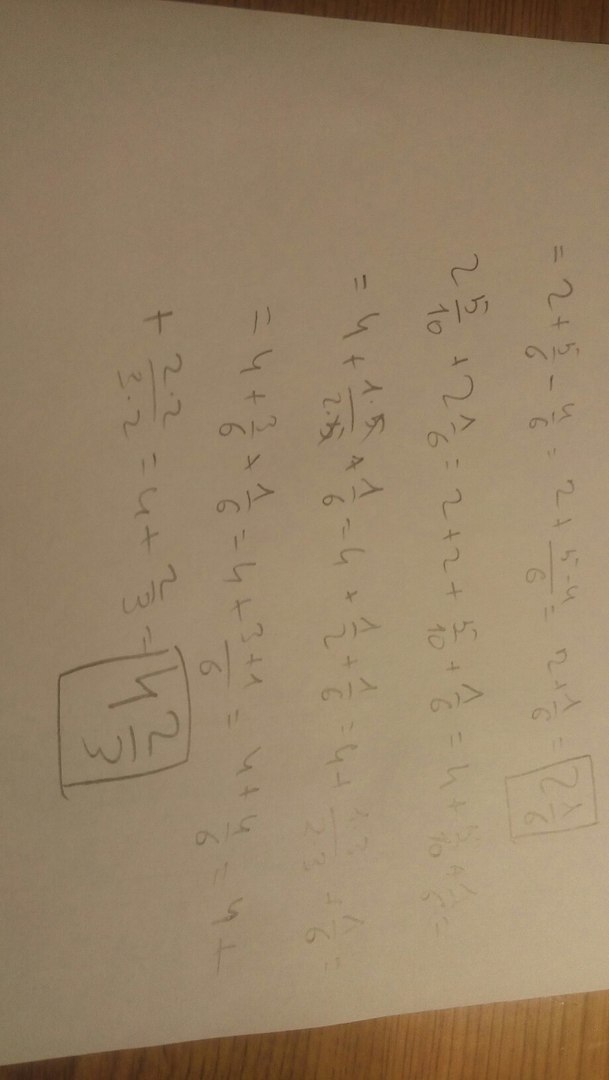 = 2 + 5/6 - 4/6 = 2 + (5-4)/6 = 2 + 1/6 = 2 1/6
2 5/10 + 2 1/6 = 2 + 2 + 5/10 + 1/6 = 4 + 5/10 + 1/6 =
= 4 + (1·5)/(2·5) + 1/6 = 4 + 1/2 + 1/6 = 4 + (1·3)/(2·3) + 1/6 =
= 4 + 3/6 + 1/6 = 4 + (3+1)/6 = 4 + 4/6 = 4 +
+ (2·2)/(3·2) = 4 + 2/3 = 4 2/3